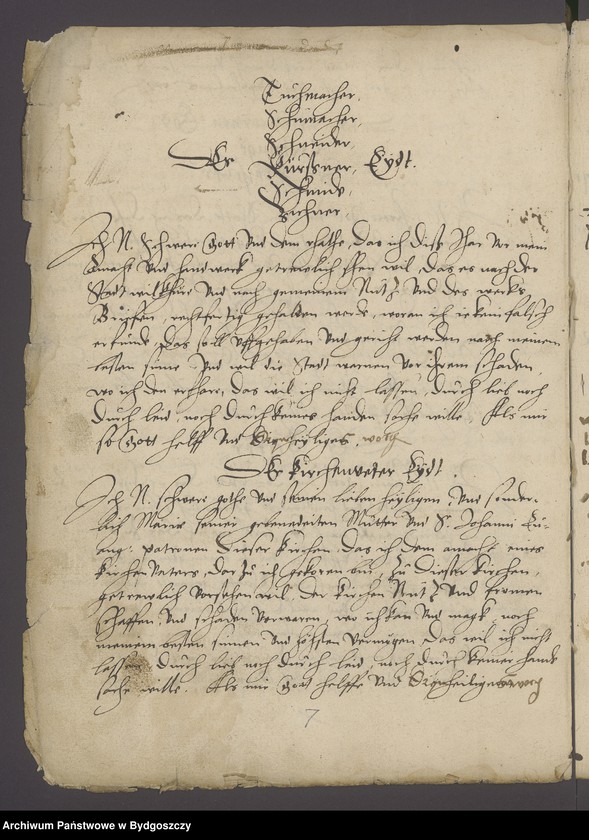 Tuchmacher,
Schumacher,
Schneider,
Der Kürßner, Eydt.
Schmide,
Buchner
Ich N. Schwere Gott vnd dem rathe, das ich diß Ihar vor mein
Ampt vnd handwerck getrewlich sthen wil, das es nach der
Stadt wilkhüre vnd nach gemeinem Nutz vnd des wercks
Brieffen, rechtfertig gehalden werde, woran ich jekein falsch
erfunde, das soll vffgehaben vnd gericht werden nach meinem
besten sinne, vnd wil die Stadt warnen vor ihrem schaden,
wo ich den erfhare, das wil ich nicht lassen, durch lieb noch
durch leid, noch durch keines handen sache wille. Als mir
so Gott helff vnd
Der Kirchenveter Eydt.
Ich N. schwere gothe vnd seinen lieben heyligen, vnd sonder-
lich Marie seiner gebenedeiten Mutter vnd S. Johanni Eu-
ang: patronen dieser kirchen, das ich dem ampte eines
kirchen Vaters, dar zu ich gekoren bin, zu dieser kirchen,
getrewlich vorsthen wil, der kirchen Nutz vnd fromen
schaffen, vnd schaden vorwaren, wo ich kan vnd magk, noch
meinem besten sinnen vnd höchsten vermögen, das wil ich nicht
lassen, durch lieb noch durch leid, noch durch keiner hande
sache wille. Als mir Gott helffe vnd
7
Archiwum Państwowe w Bydgoszczy